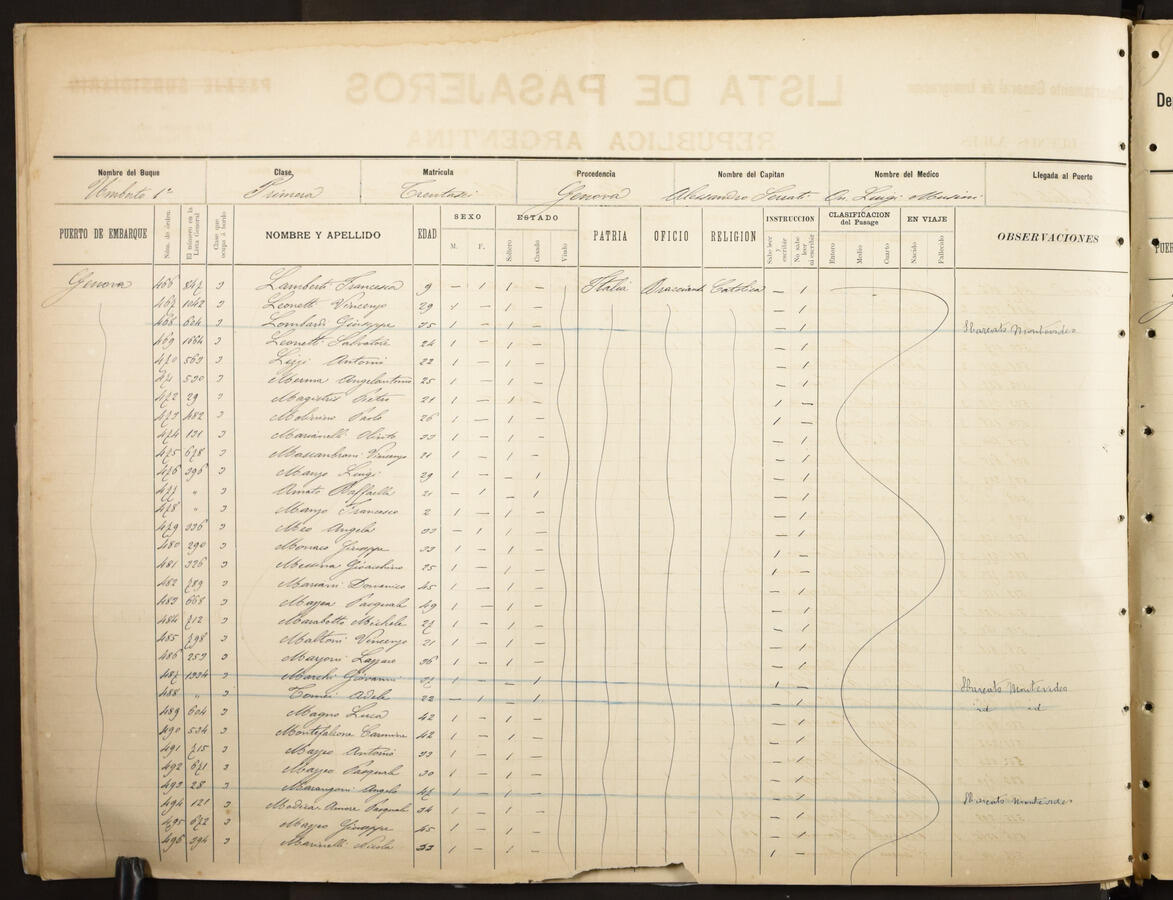 LISTA DE PASAJEROS
REPUBLICA ARGENTINA
Nombre del Buque Clase, Matricula Procedencia Nombre del Capitan Nombre del Medico Llegada al Puerto
Umberto 1º Primera Genova Alessandro Luigi
PUERTO DE EMBARQUE Núm. de órden. El número en la Lista General Clase que ocupa á bordo NOMBRE Y APELLIDO EDAD SEXO M. F. ESTADO Soltero Casado Viudo PATRIA OFICIO RELIGION INSTRUCCION Sabe leer y escribir No sabe leer ni escribir CLASIFICACION del Pasage Entero Medio Cuarto EN VIAJE Nacido Fallecido OBSERVACIONES
Genova 466 847 3 Lamberti Francesca 9 - 1 1 - Italia Bracciante Catolica - 1
467 1042 3 Leonetti Vincenzo 29 1 - 1 - - 1
468 604 3 Lombardi Giuseppe 35 1 - 1 - - 1 Sbarcato Montevideo
469 3 Leonetti Salvatore 24 1 - 1 - - 1
470 563 3 Lizzi Antonio 22 1 - 1 - - 1
471 530 3 Merma Angelantonio 25 1 - 1 - - 1
472 29 3 Magistris Pietro 21 1 - 1 - 1 -
473 482 3 Molinino Paolo 26 1 - 1 - 1 -
474 131 3 Marianelli 33 1 - 1 - - 1
475 678 3 Mascambroni Vincenzo 21 1 - 1 - - 1
476 396 3 Manzo Luigi 29 1 - - 1 - 1
477 " 3 Amato Raffaella 21 - 1 - 1 - 1
478 " 3 Manzo Francesco 2 1 - 1 - - 1
479 336 3 Meo Angela 33 - 1 1 - - 1
480 290 3 Monaco Giuseppe 33 1 - 1 - - 1
481 326 3 Messina Gioacchino 25 1 - 1 - 1 -
482 789 3 Mariani Domenico 45 1 - 1 - - 1
483 668 3 Mazzea Pasquale 49 1 - 1 - - 1
484 712 3 Marabotto Michele 27 1 - 1 - - 1
485 798 3 Maltoni Vincenzo 21 1 - 1 - - 1
486 253 3 Marzoni Lazzaro 36 1 - 1 - - 1
487 1334 3 Marchi Giovanni 1 - - 1 1 - Sbarcato Montevideo
488 " 3 Tomei Adele 22 - 1 - 1 - 1 id id
489 604 3 Magno Luca 42 1 - 1 - - 1
490 534 3 Montefalcone Carmine 42 1 - 1 - - 1
491 715 3 Mazzeo Antonio 33 1 - 1 - - 1
492 671 3 Mazzeo Pasquale 30 1 - 1 - - 1
493 28 3 Marangoni Angelo 47 1 - 1 - - 1 Sbarcato Montevideo
494 121 3 Pasquale 34 1 - 1 - - 1
495 672 3 Mazzeo Giuseppe 45 1 - 1 - - 1
496 394 3 Marinelli Nicola 33 1 - 1 - 1 -